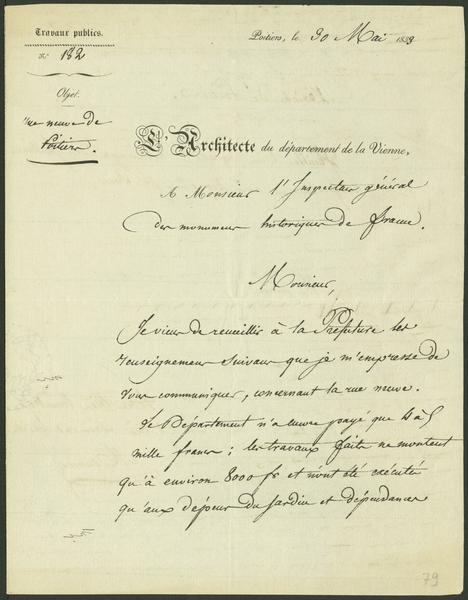 Travaux publics.
N° 182
Objet.
rue neuve de
Poitiers.
Poitiers, le 30 Mai 1839
L'Architecte du département de la Vienne,
A Monsieur l'Inspecteur général
des monumens historiques de france.
Monsieur,
Je viens de recueillir à la Préfecture les
renseignemens suivans que je m'empresse de
vous communiquer, concernant la rue neuve.
Le Département n'a encore payé que 4 à 5
mille francs; les travaux faits ne montent
qu'à environ 8000 fs et n'ont été exécutés
qu'aux dépens du Jardin et dépendances
79